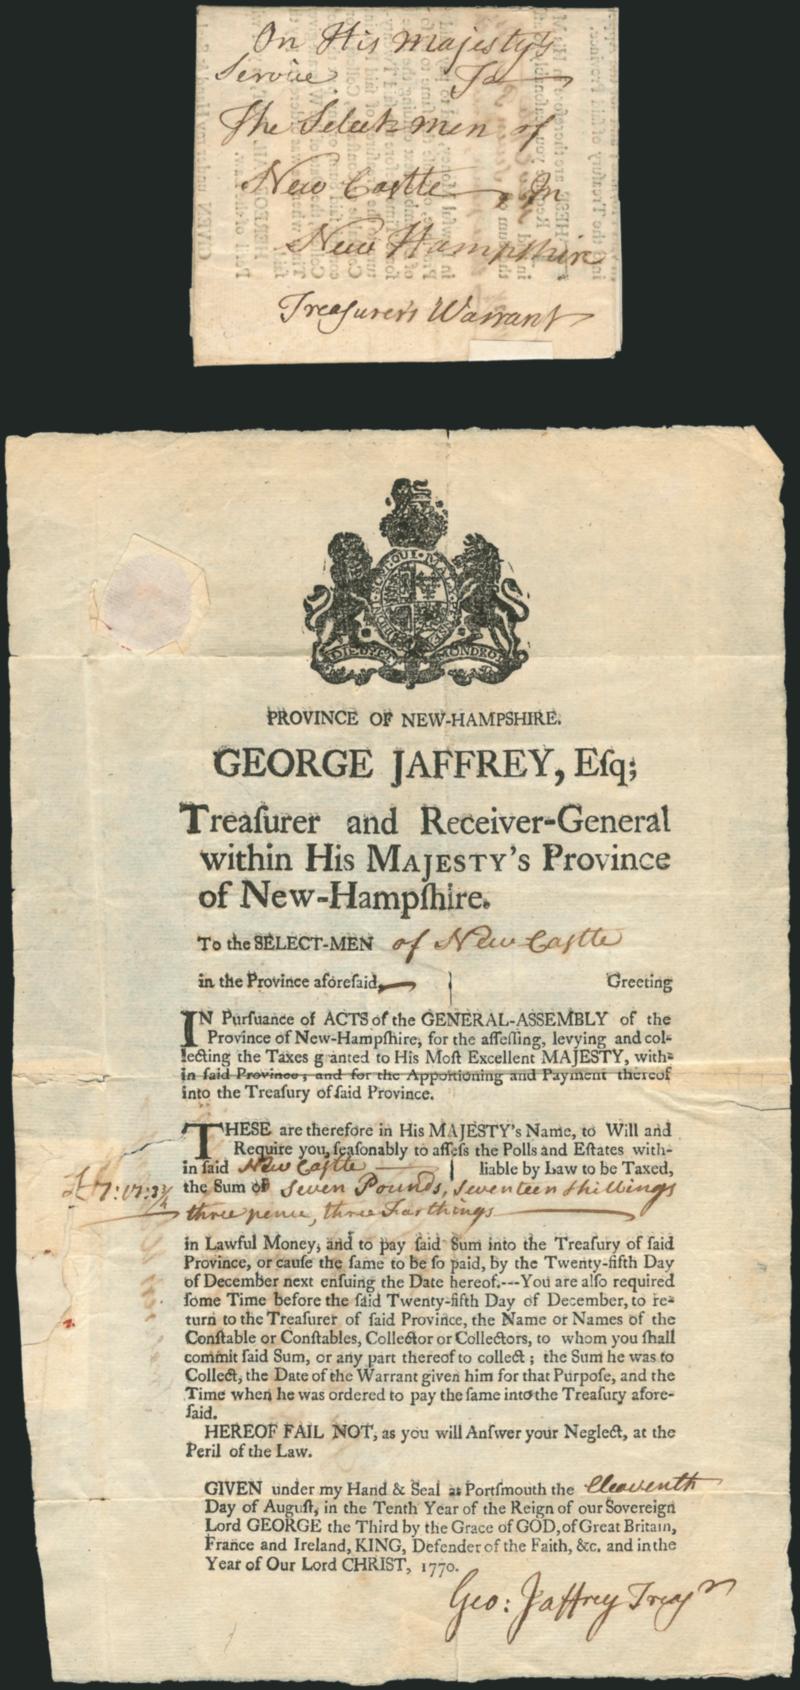 On His Majesty's
Service To
The Select men of
New Castle, In
New Hampshire
Treaſurer's Warrant
HONI·SOIT·QUI·MAL·Y·PENSE
DIEU ET MON DROIT
PROVINCE OF NEW-HAMPSHIRE.
GEORGE JAFFREY, Eſq;
Treaſurer and Receiver-General
within His MAJESTY's Province
of New-Hampſhire.
To the SELECT-MEN of New Caſtle
in the Province aforeſaid, Greeting
IN Purſuance of ACTS of the GENERAL-ASSEMBLY of the
Province of New-Hampſhire, for the aſſeſſing, levying and col-
lecting the Taxes g anted to His Moſt Excellent MAJESTY, with-
in ſaid Province; and for the Apportioning and Payment thereof
into the Treaſury of ſaid Province.
THESE are therefore in His MAJESTY's Name, to Will and
Require you, ſeaſonably to aſſeſs the Polls and Eſtates with-
in ſaid New Caſtle liable by Law to be Taxed,
£7:17:3¾ the Sum of Seven Pounds, Seventeen Shillings
three pence, three Farthings
in Lawful Money; and to pay ſaid Sum into the Treaſury of ſaid
Province, or cauſe the ſame to be ſo paid, by the Twenty-fifth Day
of December next enſuing the Date hereof.---You are alſo required
ſome Time before the ſaid Twenty-fifth Day of December, to re-
turn to the Treaſurer of ſaid Province, the Name or Names of the
Conſtable or Conſtables, Collector or Collectors, to whom you ſhall
commit ſaid Sum, or any part thereof to collect; the Sum he was to
Collect, the Date of the Warrant given him for that Purpoſe, and the
Time when he was ordered to pay the ſame into the Treaſury afore-
ſaid.
HEREOF FAIL NOT, as you will Anſwer your Neglect, at the
Peril of the Law.
GIVEN under my Hand & Seal at Portſmouth the Eleaventh
Day of Auguſt, in the Tenth Year of the Reign of our Sovereign
Lord GEORGE the Third by the Grace of GOD, of Great Britain,
France and Ireland, KING, Defender of the Faith, &c. and in the
Year of Our Lord CHRIST, 1770.
Geo: Jaffrey Treasr